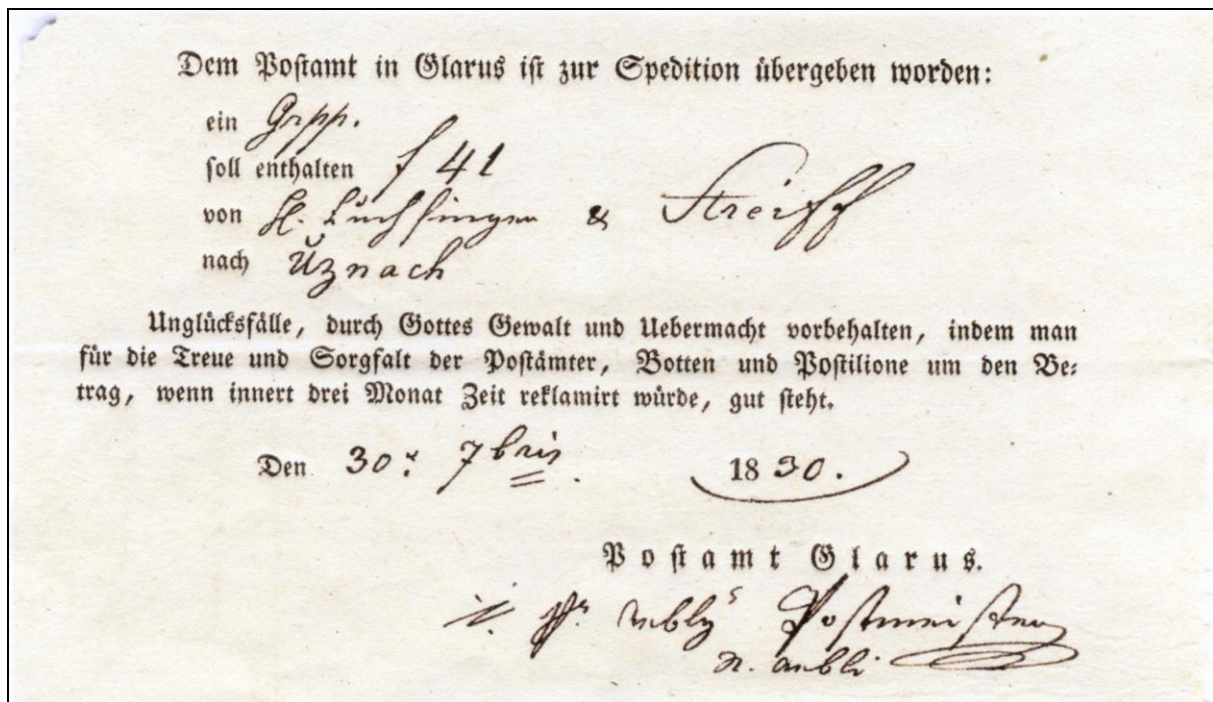 Dem Postamt in Glarus ist zur Spedition übergeben worden:
ein Grpp.
soll enthalten f 41
von H. Luchsinger & Streiff
nach Uznach
Unglücksfälle, durch Gottes Gewalt und Uebermacht vorbehalten, indem man
für die Treue und Sorgfalt der Postämter, Botten und Postilione um den Be-
trag, wenn innert drei Monat Zeit reklamirt würde, gut steht.
Den 30. 7bris. 1830.
Postamt Glarus.
Postmeister